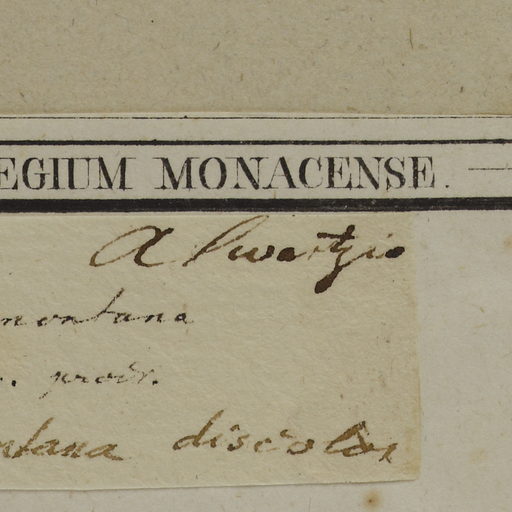 EGIUM MONACENSE.
A Swartzio
montana
. prodr.
ntana discolor